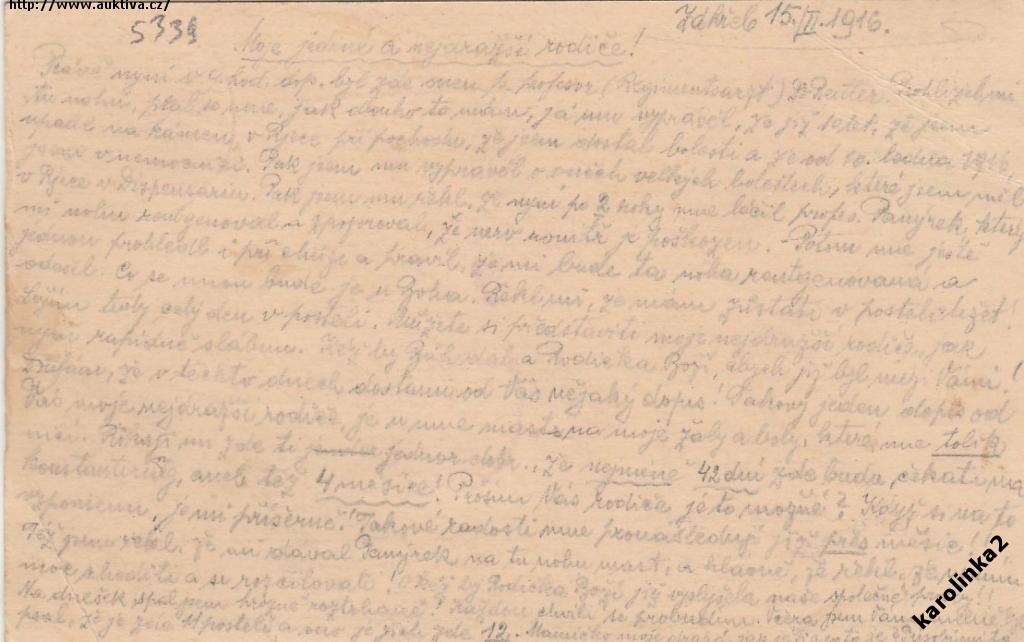 http://www.auktiva.cz/
533
Záhřeb 15./II. 1916.
Moje jediné a nejdražší rodiče!
Právě nyní v hod. dop. byl zde u mne p. profesor (Regimentsarzt) Dr. Reitler. Prohlížel mi
tu nohu, ptal se mne, jak dlouho to mám, já mu vyprávěl, že již 10 let, že jsem
upadl na kameni, v Rjece při pochodu, že jsem dostal bolesti a že od 10. ledna 1916
jsem v nemocnici. Pak jsem mu vyprávěl o oněch velkých bolestech, které jsem měl
v Rjece v Dispensariu. Pak jsem mu řekl, že nyní po 2 roky mne léčil profes. Panýrek, který
mi nohu rentgenoval a zpozoroval, že nerv uvnitř je poškozen. Potom mne ještě
jednou prohledl i při chůzi a pravil, že mi bude ta noha rentgenovaná a
odešel. Co se mnou bude je u Boha. Řekl mi, že mám zůstati v posteli ležet!
Ležím tedy celý den v posteli. Můžete si představiti moje nejdražší rodiče, jak
nyní rapidně slabnu. Kéž by Bůh dal a Rodička Boží, abych již byl mezi Vámi!
Doufám, že v těchto dnech dostanu od Vás nějaký dopis! Takový jeden dopis od
Vás moje nejdražší rodiče, je u mne mast na moje žaly a boly, které mne tolik
ničí. Říkají mi zde ti jednor. dobr., že nejméně 42 dní zde budu čekati na
konstatirung, aneb též 4 měsíce! Prosím Vás rodiče je to možné? Když si na to
vzpomenu, je mi příšerně! Takové radosti mne pronásledují již přes měsíc!
Též jsem řekl, že mi dával Panýrek na tu nohu mast, a hlavně, že řekl, že nesmím
moc choditi a se rozčilovati! Kéž by Rodička Boží již vyslyšela naše společné prosby!!
Na dnešek spal jsem hrozně roztrhaně! Každou chvíli se probudím. Včera jsem Vám
psal, že je zde 11 postelí a ono je jich zde 12. Mamičko moje drahá, jak je
karolinka2